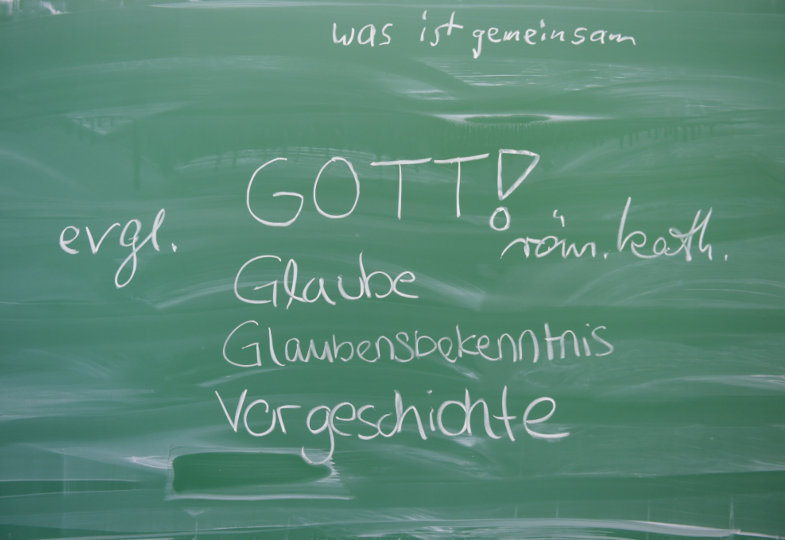 was ist gemeinsam
GOTT!
evgl.
röm. kath.
Glaube
Glaubensbekenntnis
Vorgeschichte